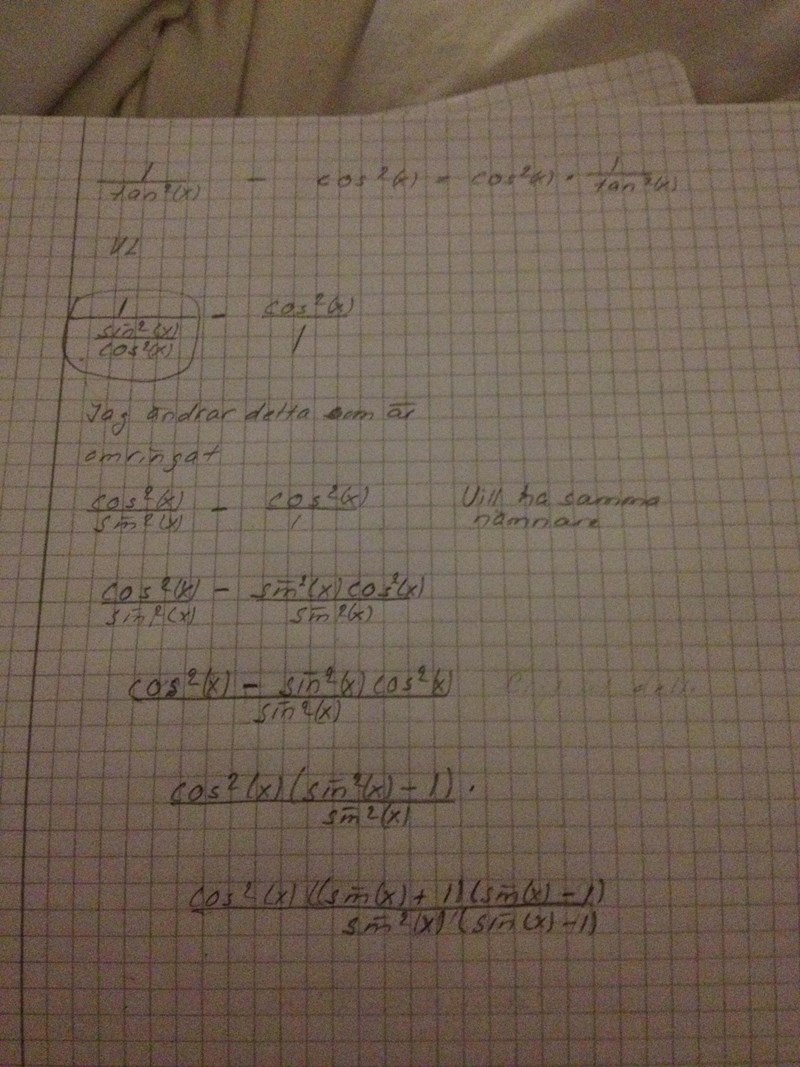 1/tan²(x) - cos²(x) = cos²(x) · 1/tan²(x)
VL
1/(sin²(x)/cos²(x)) - cos²(x)/1
Jag ändrar detta som är
omringat
cos²(x)/sin²(x) - cos²(x)/1 Vill ha samma
nämnare
cos²(x)/sin²(x) - sin²(x)cos²(x)/sin²(x)
cos²(x) - sin²(x)cos²(x)/sin²(x)
cos²(x)(sin²(x)-1)/sin²(x) .
cos²(x)((sin(x)+1)(sin(x)-1)/sin²(x)(sin(x)-1)